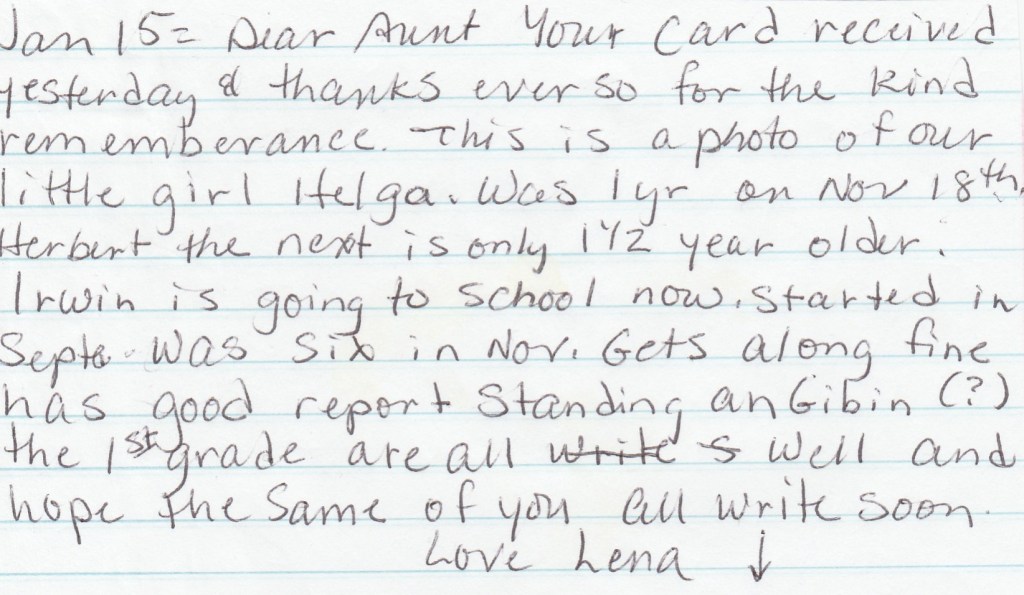 Jan 15= Dear Aunt Your Card received
yesterday & thanks ever so for the kind
rememberance. This is a photo of our
little girl Helga. Was 1yr on Nov 18th.
Herbert the next is only 1 1/2 year older.
Irwin is going to school now. Started in
Septe. Was Six in Nov. Gets along fine
has good report Standing an Gibin (?)
the 1st grade are all write s well and
hope the Same of you all write soon.
Love Lena ↓